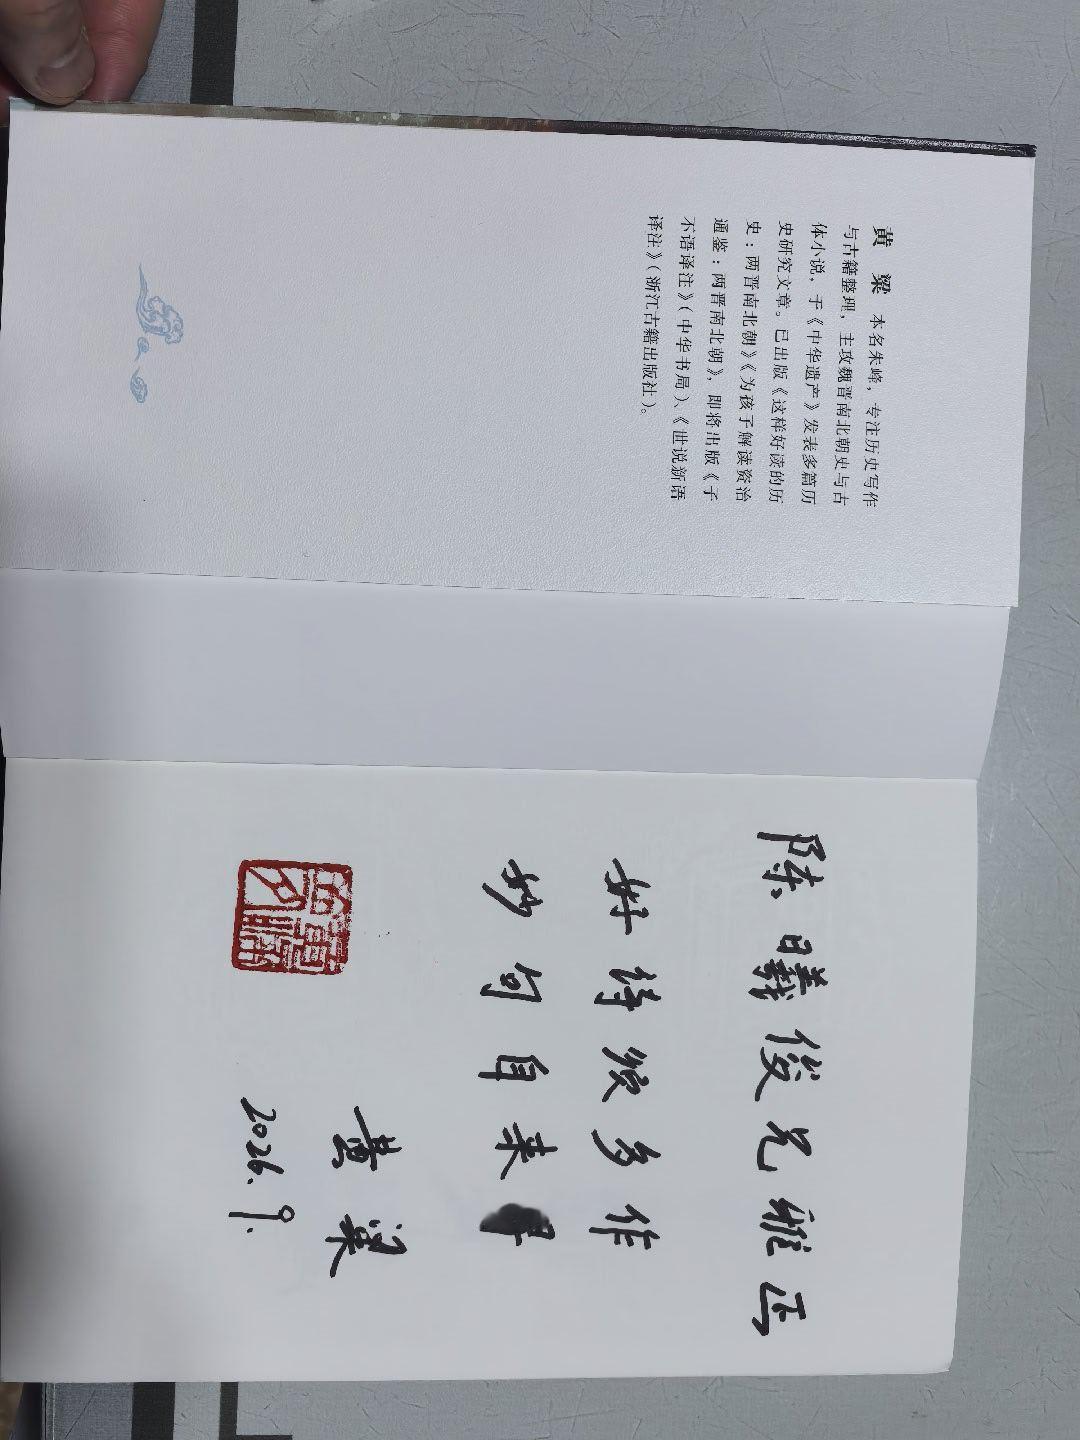 黄 粱 本名朱峰，专注历史写作
与古籍整理，主攻魏晋南北朝史与古
体小说，于《中华遗产》发表多篇历
史研究文章。已出版《这样好读的历
史：两晋南北朝》《为孩子解读资治
通鉴：两晋南北朝》，即将出版《子
不语译注》（中华书局）、《世说新语
译注》（浙江古籍出版社）。
陈曦俊兄雅正
好诗须多作
妙句自来
黄粱
2026.9.